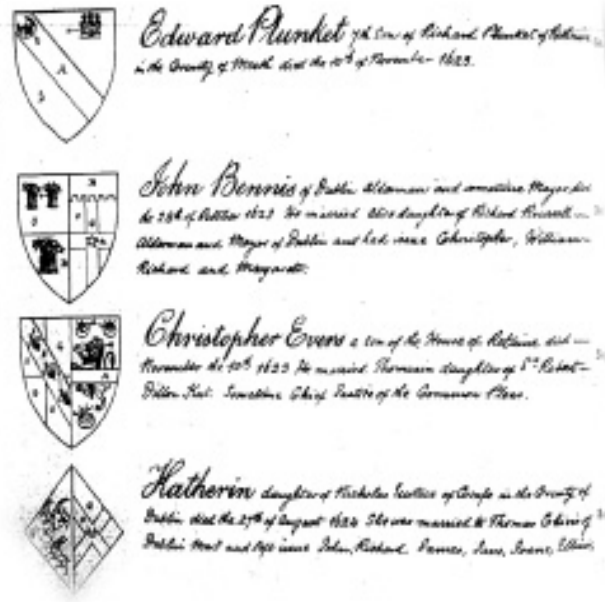 Edward Plunket 7th Son of Richard Plunket of
in the County of Meath died the 10th of November 1623.
John Bennis of Dublin Alderman and sometime Mayor died
the 28th of October 1623 He married daughter of Richard
Alderman and Mayor of Dublin and had issue Christopher, William
Richard and Margarett.
Christopher Evers a son of the House of died
November the 10th 1623 He married daughter of Sr Robert
Dillon Knt. Sometime Chief Justice of the Common Pleas.
Katherin daughter of Nicholas of in the County of
Dublin died the 27th of August 1624 She was married to Thomas of
Dublin and issue John, Richard, James,